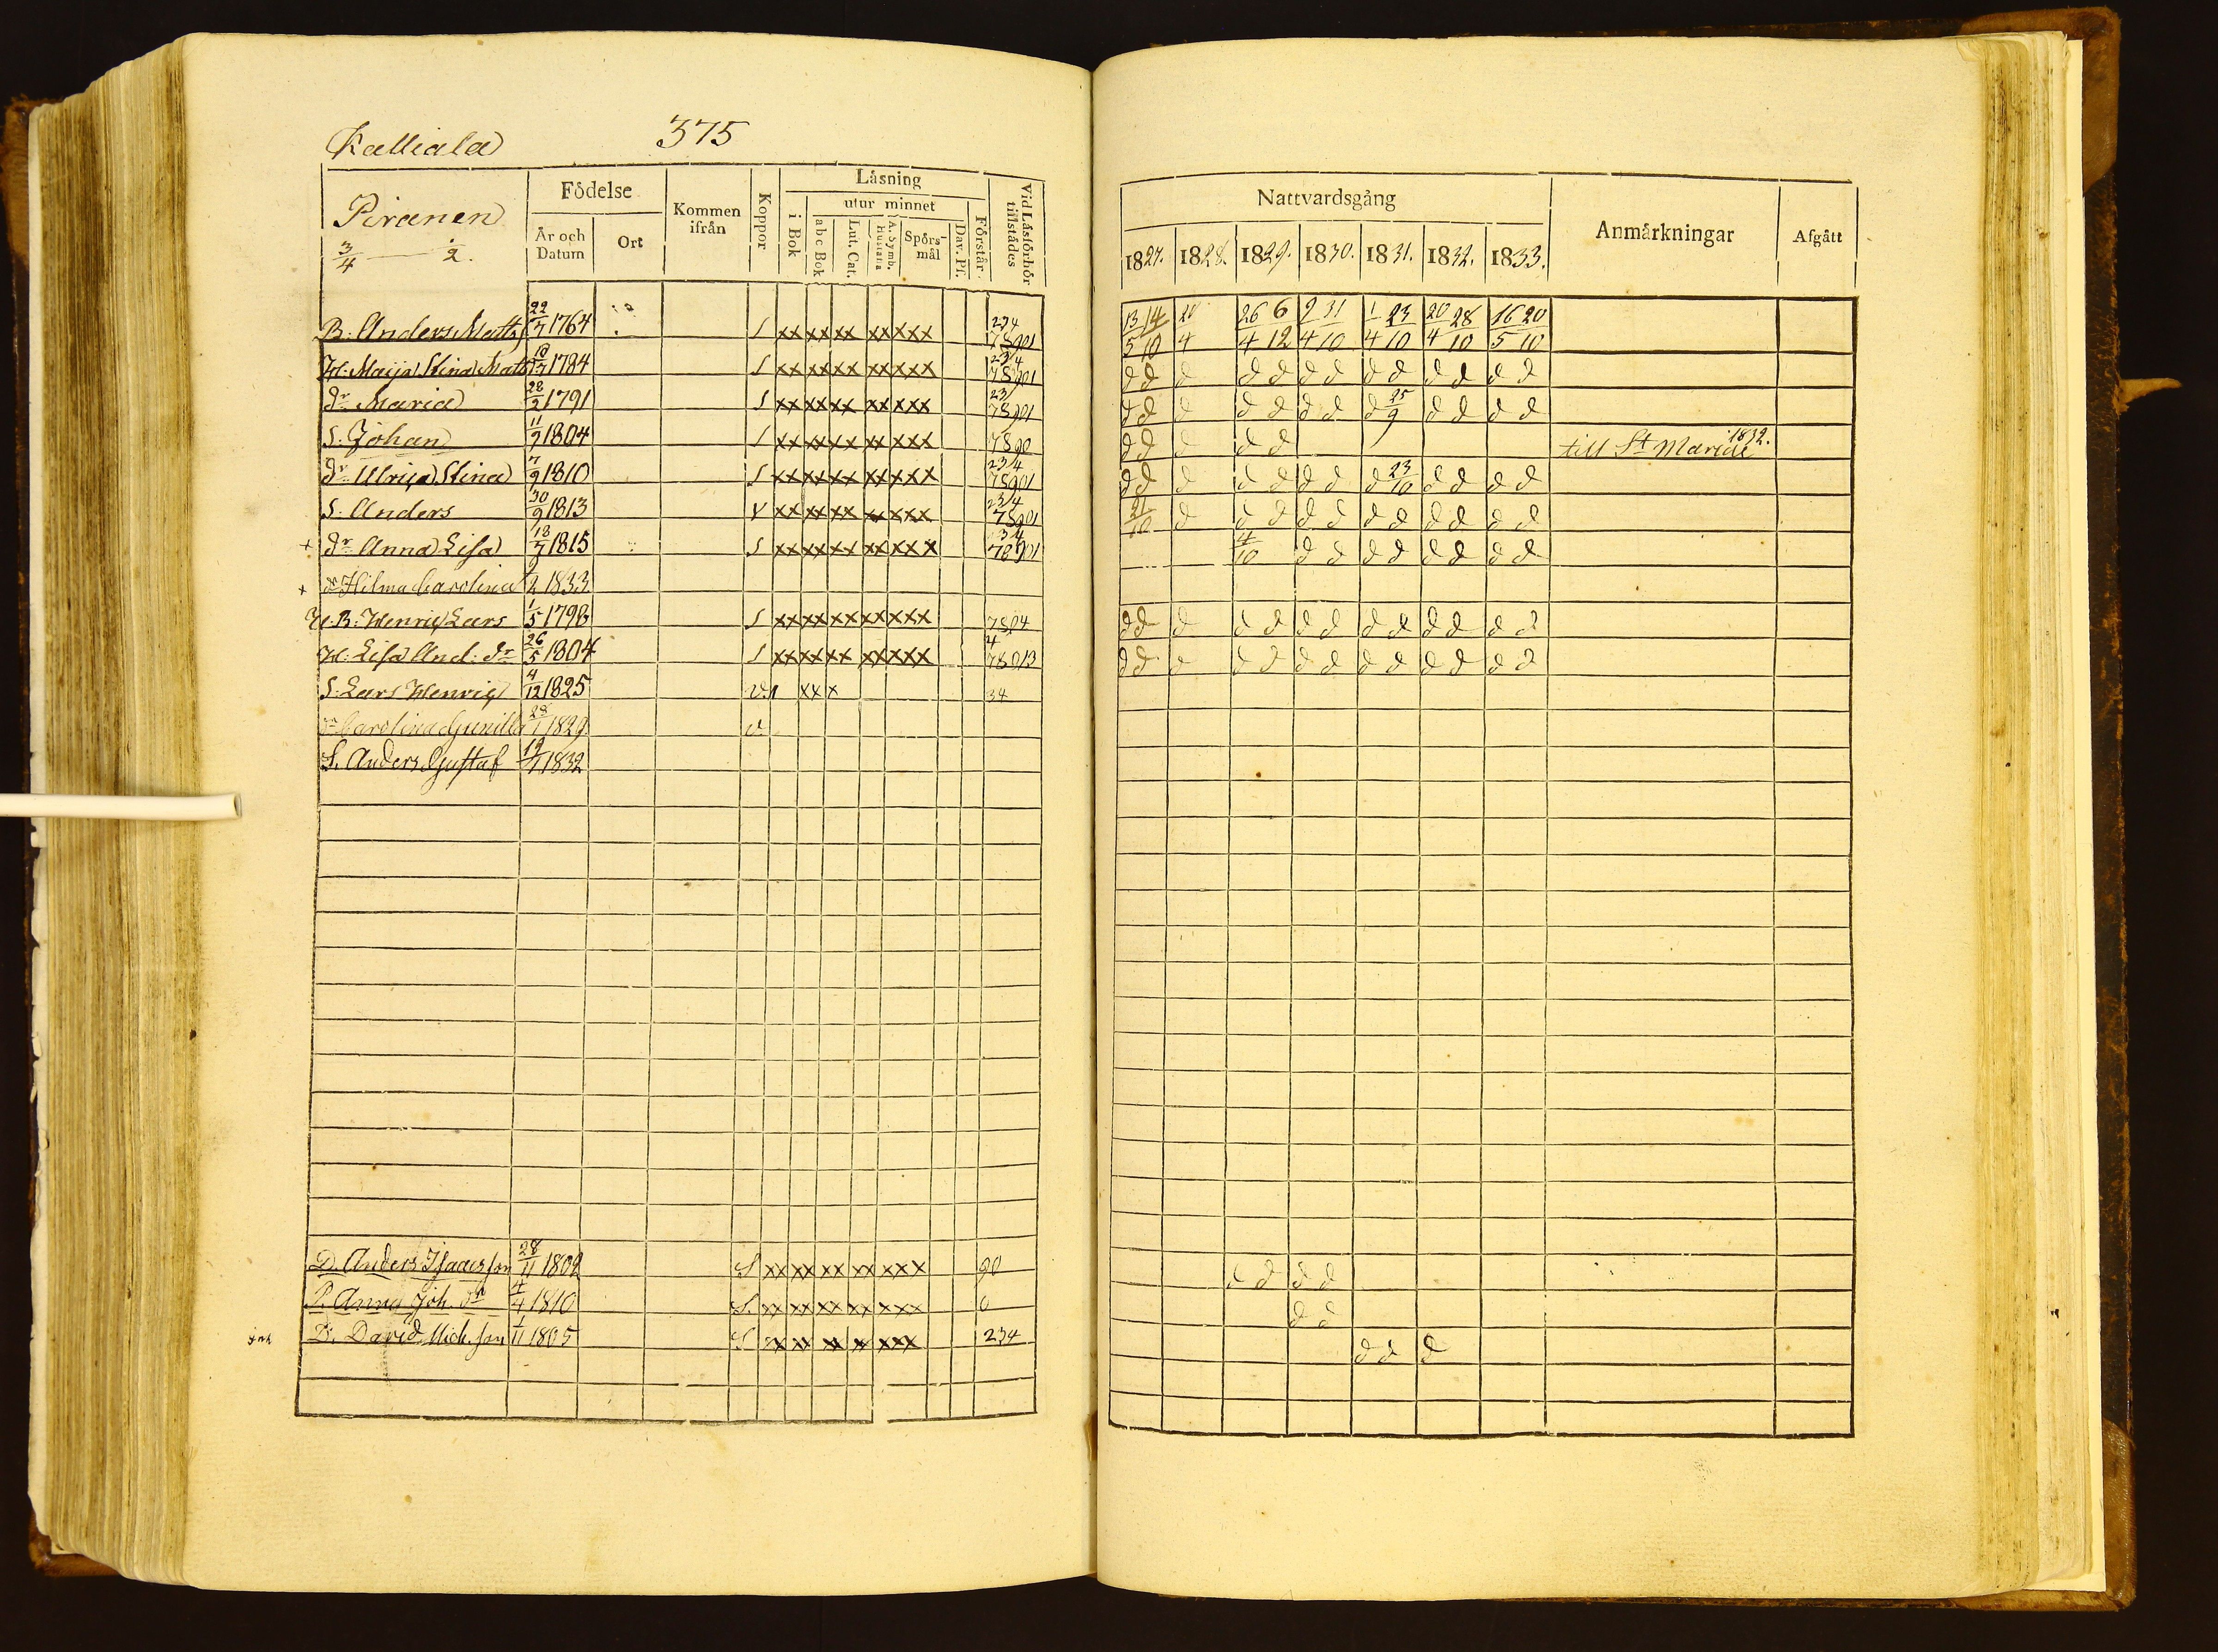 Kalliala 375
Piranen
3/4 — 2.
Födelse
År och Datum
Ort
Kommen ifrån
Koppor
Läsning
i Bok
utur minnet
abc Bok
Lut. Cat.
A. Symb. Hustafla
Spörsmål
Dav. Pf.
Förstår
Vid Läsförhör tillstädes
Nattvardsgång
1827. 1828. 1829. 1830. 1831. 1832. 1833.
Anmärkningar
Afgått
B: Anders Matts 22/7 1764 S xx xx xx xx xxx 234 78901 13/5 14/10 4 26/4 6/12 9/4 31/10 1/4 23/10 20/4 28/10 16/5 20/10
H: Maija Stina Mats 1784 S xx xx xx xx xxx 234 78901 d d d d d d d d d d d d d
dr Maria 28/2 1791 S xx xx xx xx xxx 23 78901 d d d d d d d d 25/9 d d d d
S: Johan 11/9 1804 S xx xx xx xx xxx 7890 d d d d d till St Mariæ 1832.
dr Ulrica Stina 7/9 1810 S xx xx xx xx xxx 234 78901 d d d d d d d d 23/10 d d d d
S: Anders 30/9 1813 V xx xx xx xx xxx 234 78901 21/10 d d d d d d d d d d d
+ dr Anna Lisa 18/7 1815 S xx xx xx xx xxx 34 78901 4/10 d d d d d d d d
+ dr Hilma Carolina 9/2 1833
B: Henric Lars 1/5 1798 S xx xx xx xx xxx 7804 d d d d d d d d d d d d d
H: Lisa And: dr 26/5 1804 S xx xx xx xx xxx 4 78013 d d d d d d d d d d d d d
S: Lars Henric 4/12 1825 v. xx x 34
dr Carolina Gunilla 28/1 1829 v
S. Anders Gustaf 19/7 1832
D. Anders Isacsson 28/11 1802 S xx xx xx xx xxx 90 d d d d
P. Anna Joh. dr 4/4 1810 S. xx xx xx xx xxx 0 d d
D. David Mich. son 1/11 1805 S xx xx xx x xxx 234 d d d